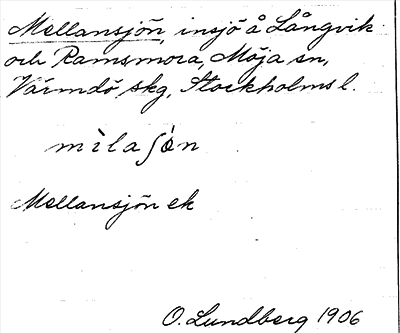 Mellansjön, insjö å Långvik
och Ramsmora, Möja sn,
Värmdö skg, Stockholms l.
mìlaʃön
Mellansjön ek
O. Lundberg 1906